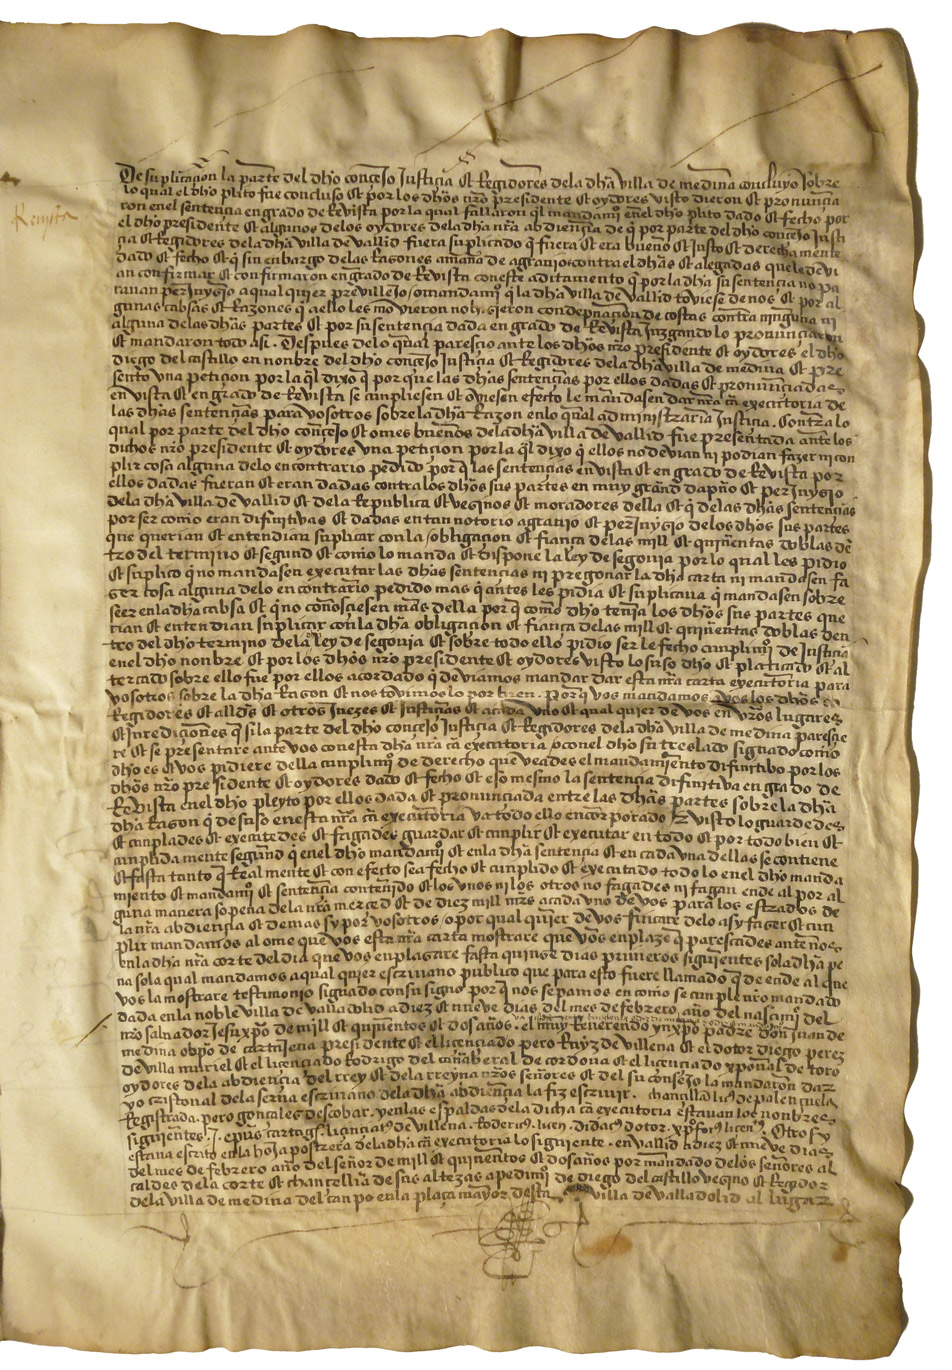 De suplicaçion la parte del dho conçejo Justiçia et Regidores dela dha villa de medina concluyo sobre
lo qual el dho plito fue concluso et por los dhos nro presidente et oydores visto dieron et pronunçia
ron enel sentençia en grado de Revista por la qual fallaron ql mandamio enel dho plito dado et fecho por
Revista
el dho presidente et algunos delos oydores dela dha nra abdiençia de q por parte del dho conçejo Justi
çia et Regidores dela dha villa de vallid fuera suplicado q fuera et era bueno et Justo et derecha mente
dado et fecho et q sin enbargo delas Razones a manera de agravios contra el dhas et alegadas que le devi
an confirmar et confirmaron en grado de Revista con este aditamento q por la dha su sentençia no pa
ravan perJuyzio a qual quier previllejo / o mandamio q la dha villa de vallid toviese de nos et por al
gunas cabsas et Razones q a ello les movieron no hizieron condepnaçion de costas contra ninguna ni
alguna delas dhas partes et por su sentençia dada en grado de Revista Juzgando lo pronunçiaron
et mandaron todo asi. Despues delo qual paresçio ante los dhos nro presidente et oydores el dho
diego del castillo en nonbre del dho conçejo Justiçia et Regidores dela dha villa de medina et pre
sento vna petiçion por la ql dixo q por que las dhas sentençias por ellos dadas et pronunçiadas
en vista et en grado de Revista se cunpliesen et oviesen efecto le mandasen dar nra ca executoria de
las dhas sentençias para vosotros sobre la dha Razon enlo qual administraria Justiçia. Contra lo
qual por parte del dho conçejo et omes buenos dela dha villa de vallid fue presentada ante los
dichos nro presidente et oydores vna petiçion por la ql dixo q ellos no devian ni podian fazer ni con
plir cosa alguna delo en contrario pedido por q las sentençias en vista et en grado de Revista por
ellos dadas fueran et eran dadas contra los dhos sus partes en muy grand dapño et perJuyzio
dela dha villa de vallid et dela Republica et vezinos et moradores della et q delas dhas sentençias
por ser como eran difinitivas et dadas en tan notorio agravio et perJuyzio delos dhos sus partes
que querian et entendian suplicar con la / obligaçion et fiança delas mill et quinientas doblas den
tro del termino et segund et como lo manda et dispone la ley de segovia por lo qual les pidio
et suplico q no mandasen executar las dhas sentençias ni pregonar la dha carta ni mandasen fa
zer cosa alguna delo en contrario pedido mas q antes les pidia et suplicava q mandasen sobre
seer enla dha cabsa et q no conosçiesen mas della por q como dho tenia los dhos sus partes que
rian et entendian suplicar con la dha obligaçion et fiança delas mill et quinientas doblas den
tro del dho termino dela ley de segovia et sobre todo ello pidio ser le fecho cunplimio de Justiçia
enel dho nonbre et por los dhos nro presidente et oydores visto lo suso dho et platicado et al
tercado sobre ello fue por ellos acordado q deviamos mandar dar esta nra carta executoria para
vosotros sobre la dha Razon et nos tovimos lo por bien. Por q vos mandamos a vos los dhos co
Regidores et alldes et otros Juezes et Justiçias et a cada vno et qual quier de vos en vros lugares
et Juridiçiones q si la parte del dho conçejo Justiçia et Regidores dela dha villa de medina paresçie
re et se presentare ante vos con esta dha nra ca executoria / o con el dho su treslado signado como
dho es et vos pidiere della cunplimio de derecho que veades el mandamiento difinitibo por los
dhos nro presidente et oydores dado et fecho et eso mesmo la sentençia difinitiva en grado de
Revista enel dho pleyto por ellos dada et pronunçiada entre las dhas partes sobre la dha
dha Razon q de suso en esta nra ca executoria va todo ello encorporado et visto lo guardedes
et cunplades et executedes et fagades guardar et cunplir et executar en todo et por todo bien et
cunplida mente segund q enel dho mandamio et enla dha sentençia et en cada vna dellas se contiene
et fasta tanto q Real mente et con efecto sea fecho et cunplido et executado todo lo enel dho manda
miento et mandamio et sentençia contenido et los vnos ni los otros no fagades ni fagan ende al por al
guna manera so pena dela nra merced et de diez mill mrs a cada vno de vos para los estrados de
la nra abdiençia et demas sy por vosotros / o por qual quier de vos fincare delo asy fazer et cun
plir mandamos al ome que vos esta nra carta mostrare que vos enplaze q parescades ante nos
enla dha nra corte del dia que vos enplazare fasta quinze dias primeros siguientes so la dha pe
na so la qual mandamos a qual quier escrivano publico que para esto fuere llamado q de ende al que
vos la mostrare testimonio signado con su signo por q nos sepamos en como se cunple nro mandado
dada enla noble villa de valladolid a diez et nueve dias del mes de febrero año del nasçimio del
nro salvador Jesuxpo de mill et quinientos et dos años. el muy Reverendo yn xpo padre don Juan de
medina obpo de cartajena presidente et el liçençiado pero Ruyz de villena et el dotor diego perez
de villa muriel et el liçençiado Rodrigo del cañaberal de cordova et el liçençiado xpoval de toro
oydores dela abdiençia del rrey et dela rreyna nros señores et del su consejo la mandaron dar
yo cristoval dela serna escrivano dela dha abdiençia la fiz escrivir. chançiller liçus de palençuela
Registrada. pero gonçales descobar. yenlas espaldas dela dicha ca executoria estavan los nonbres
siguientes. J. epus cartags. liçençiatus de villena. Rodericus. licen. didacus dotor. xpoforus licens. Otro sy
estava escrito enla hoja postrera dela dha ca executoria lo siguiente. en vallid a diez et nueve dias
del mes de febrero año del señor de mill et quinientos et dos años por mandado delos señores al
caldes dela corte et chançelleria de sus altezas a pedimio de diego del castillo vezino et Regidor
dela villa de medina del canpo enla plaça mayor desta villa de valladolid al lugar